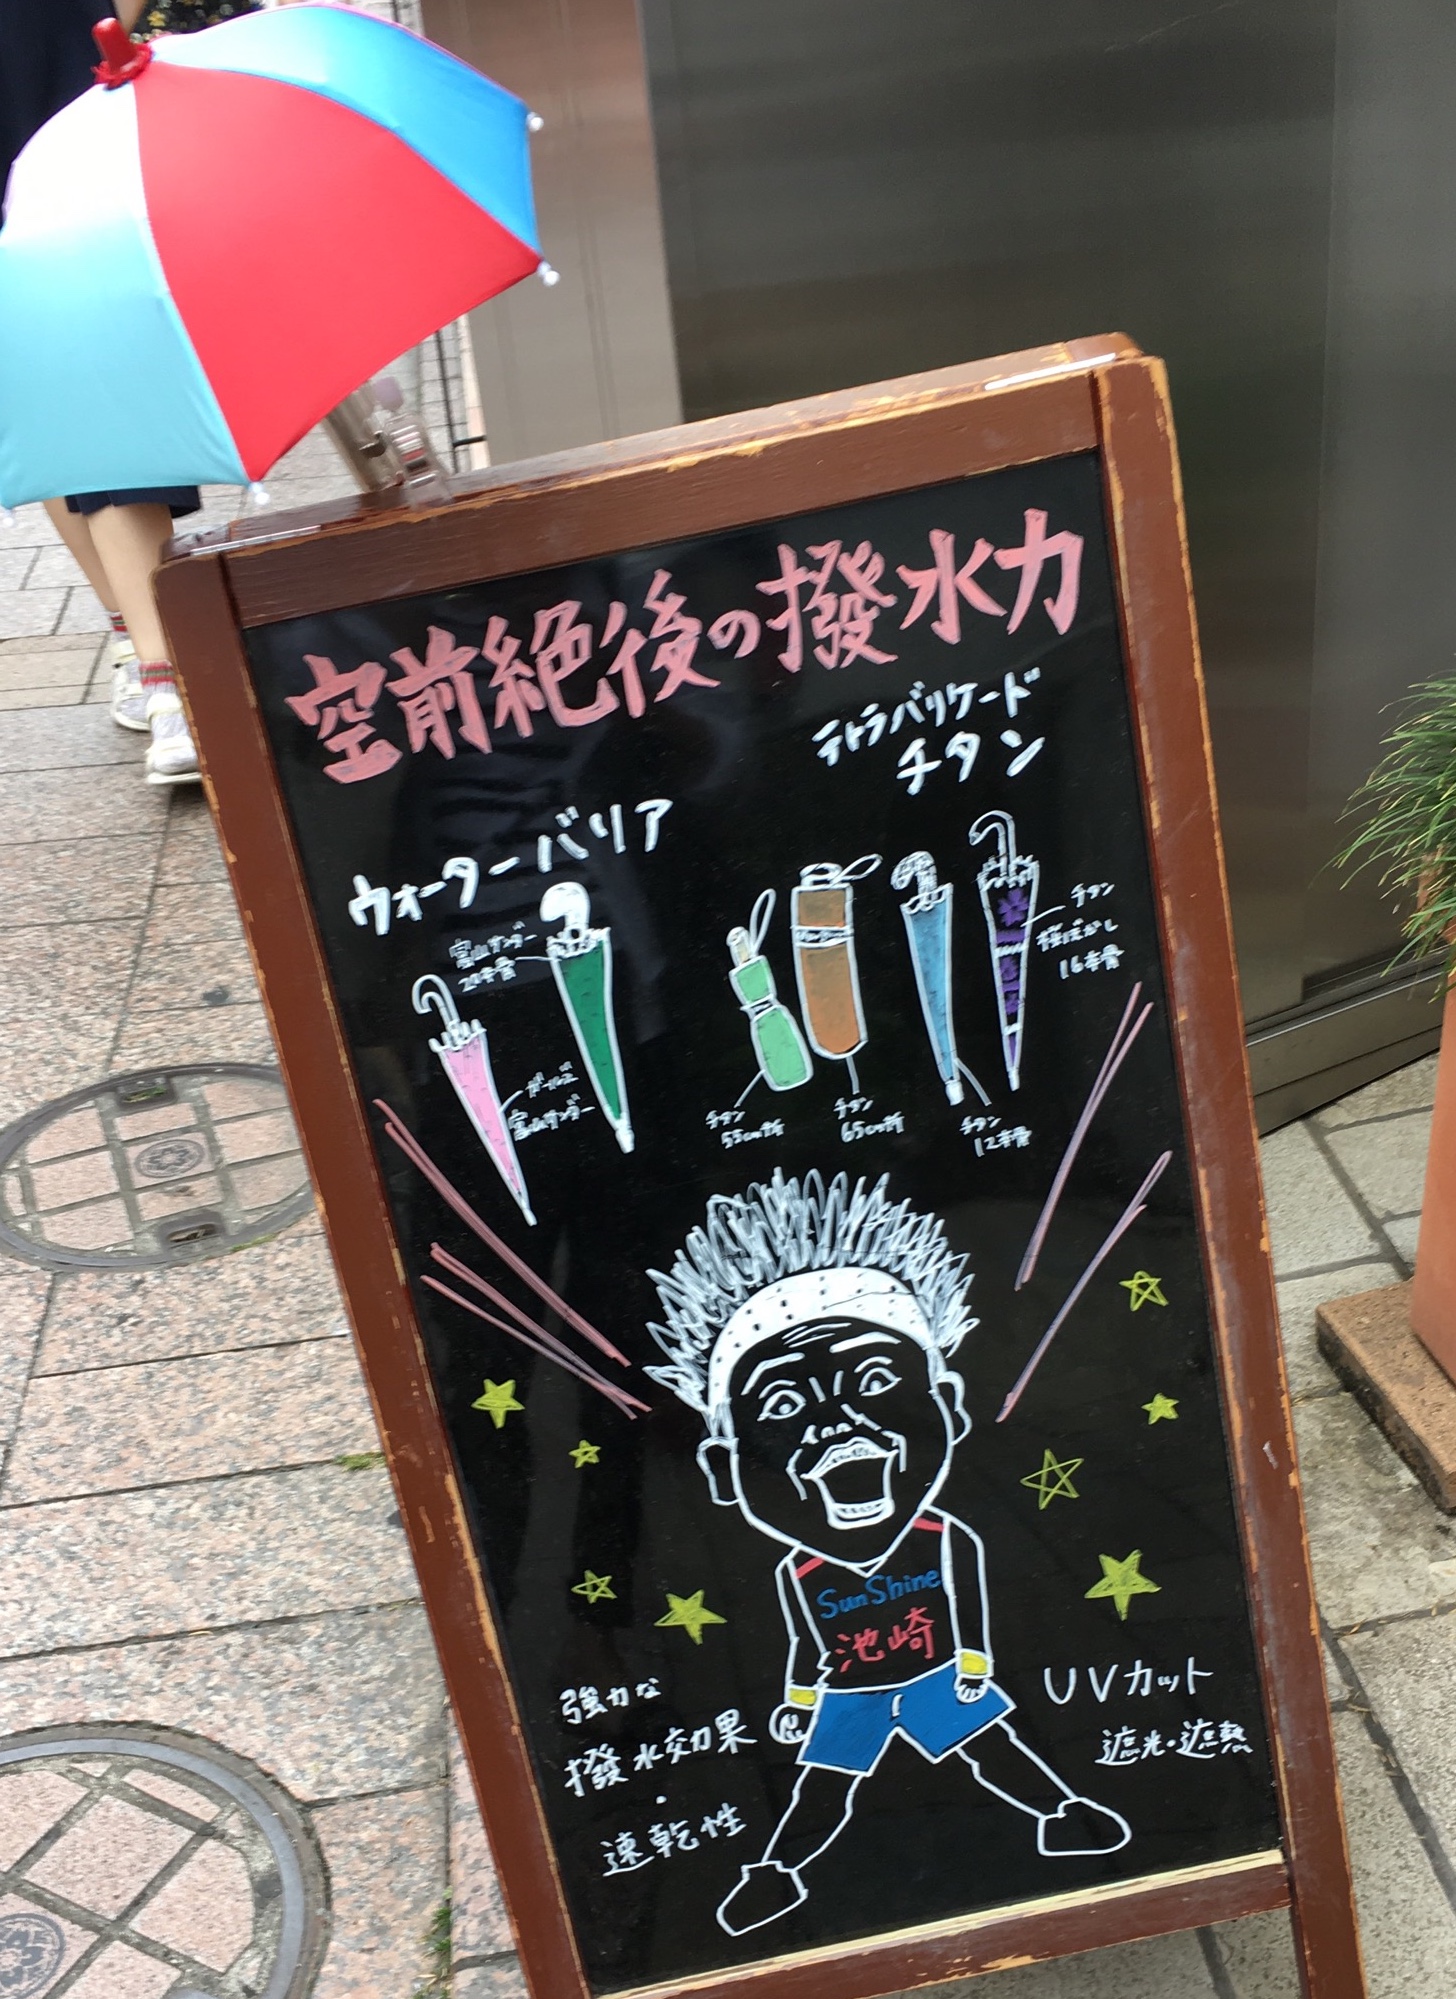 空前絶後の撥水力
テトラバリケード
チタン
ウォーターバリア
富山サンダー
24本骨
ガールズ
富山サンダー
チタン
55cm折
チタン
65cm折
チタン
12本骨
チタン
桜ぼかし
16本骨
SunShine
池崎
強力な
撥水効果
・
速乾性
UVカット
遮光・遮熱